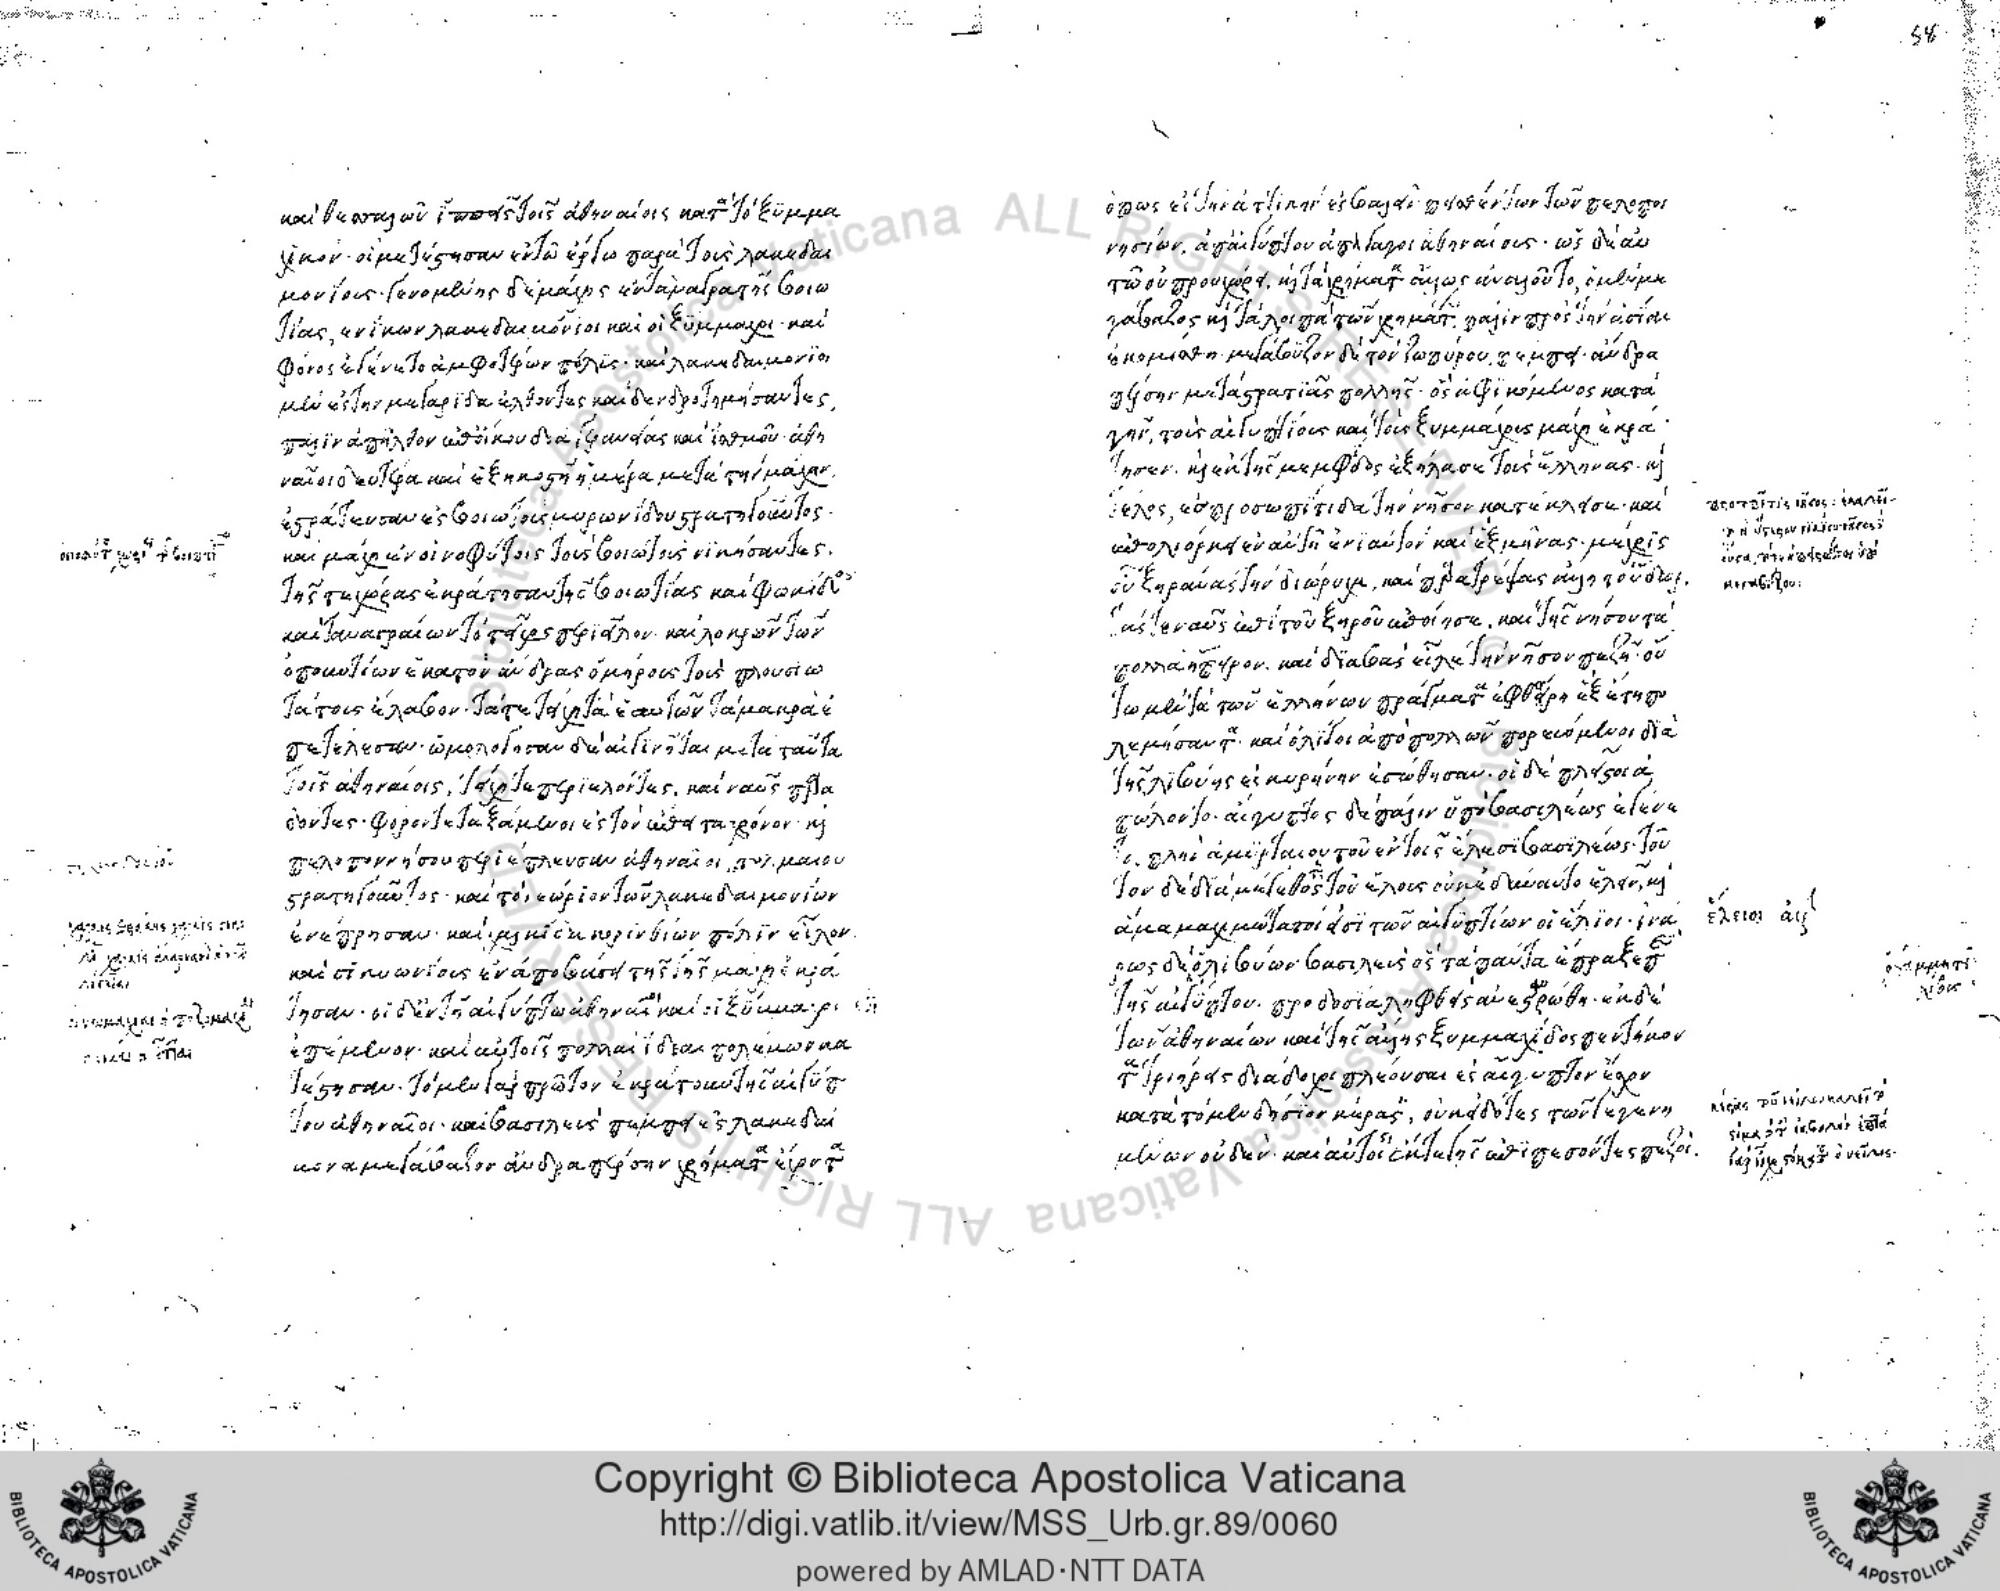 58
καὶ θεσσαλῶν ἱππεῖς τοῖς ἀθηναίοις κατὰ τὸ ξυμμα
χικόν· οἳ μετέστησαν ἐν τῶ ἔργω παρὰ τοὺς λακεδαι
μονίους· γενομένης δὲ μάχης ἐν τανάγρα τῆς βοιω
τίας, ἐνίκων λακεδαιμόνιοι καὶ οἱ ξύμμαχοι· καὶ
φόνος ἐγένετο ἀμφοτέρων πολύς· καὶ λακεδαιμόνιοι
μὲν ἐς τὴν μεγαρίδα ἐλθόντες καὶ δενδροτομήσαντες,
πάλιν ἀπῆλθον ἐπ' οἴκου διὰ γερανείας καὶ ἰσθμοῦ· ἀθη
ναῖοι δὲ δευτέρα καὶ ἑξηκοστῆ ἡμέρα μετὰ τὴν μάχην,
ἐστράτευσαν ἐς βοιωτοὺς μυρωνίδου στρατηγοῦντος·
καὶ μάχη ἐν οἰνοφύτοις τοὺς βοιωτοὺς νικήσαντες,
τῆς τε χώρας ἐκράτησαν τῆς βοιωτίας καὶ φωκίδος
καὶ ταναγραίων τὸ τεῖχος περιεῖλον· καὶ λοκρῶν τῶν
ὀπουντίων ἑκατὸν ἄνδρας ὁμήρους τοὺς πλουσιω
τάτους ἔλαβον· τά τε τείχη τὰ ἑαυτῶν τὰ μακρὰ ἐ
πετέλεσαν· ὡμολόγησαν δὲ αἰγινῆται μετὰ ταῦτα
τοῖς ἀθηναίοις, τείχη τε περιελόντες, καὶ ναῦς παρα
δόντες· φόρον τε ταξάμενοι ἐς τὸν ἔπειτα χρόνον· καὶ
πελοπόννησον περιέπλευσαν ἀθηναῖοι τολμαίου
στρατηγοῦντος· καὶ τὸ νεώριον τῶν λακεδαιμονίων
ἐνέπρησαν· καὶ χαλκίδα κορινθίων πόλιν εἷλον·
καὶ σικυωνίους ἐν ἀποβάσει τῆς γῆς μάχη ἐκρά
τησαν· οἱ δ' ἐν τῆ αἰγύπτω ἀθηναῖοι καὶ οἱ ξύμμαχοι
ἐπέμενον· καὶ αὐτοῖς πολλαὶ ἰδέαι πολέμων κα
τέστησαν· τὸ μὲν γὰρ πρῶτον ἐκράτουν τῆς αἰγύπ
του ἀθηναῖοι· καὶ βασιλεὺς πέμπει ἐς λακεδαί
μονα μεγάβαζον ἄνδρα πέρσην χρήματα ἔχοντα
ὅπως ἐς τὴν ἀττικὴν ἐσβαλεῖν πεισθέντων τῶν πελοπον
νησίων, ἀπ' αἰγύπτου ἀπαγάγοι ἀθηναίους· ὡς δὲ αὐ
τῶ οὐ προυχώρει, καὶ τὰ χρήματα ἄλλως ἀναλοῦτο, ὁ μὲν με
γάβαζος καὶ τὰ λοιπὰ τῶν χρημάτων πάλιν πρὸς τὴν ἀσίαν
ἐκομίσθη· μεγάβυζον δὲ τὸν ζωπύρου πέμπει ἄνδρα
πέρσην μετὰ στρατιᾶς πολλῆς· ὃς ἀφικόμενος κατὰ
γῆν, τοὺς αἰγυπτίους καὶ τοὺς ξυμμάχους μάχη ἐκρά
τησεν· καὶ ἐκ τῆς μέμφιδος ἐξήλασε τοὺς ἕλληνας· καὶ
τέλος, ἐς προσωπίτιδα τὴν νῆσον κατέκλησε· καὶ
ἐπολιόρκει ἐν αὐτῆ ἐνιαυτὸν καὶ ἓξ μῆνας· μέχρις
οὗ ξηράνας τὴν διώρυχα, καὶ παρατρέψας ἄλλη τὸ ὕδωρ,
τάς τε ναῦς ἐπὶ τοῦ ξηροῦ ἐποίησε, καὶ τῆς νήσου τὰ
πολλὰ ἤπειρον· καὶ διαβὰς εἷλε τὴν νῆσον πεζῆ· οὕ
τω μὲν τὰ τῶν ἑλλήνων πράγματα ἐφθάρη ἓξ ἔτη πο
λεμήσαντα· καὶ ὀλίγοι ἀπὸ πολλῶν πορευόμενοι διὰ
τῆς λιβύης ἐς κυρήνην ἐσώθησαν· οἱ δὲ πλεῖστοι ἀ
πώλοντο· αἴγυπτος δὲ πάλιν ὑπὸ βασιλέως ἐγένε
το, πλὴν ἀμυρταίου τοῦ ἐν τοῖς ἕλεσι βασιλέως· τοῦ
τον δὲ διὰ μέγεθος τοῦ ἕλους οὐκ ἐδύναντο ἑλεῖν, καὶ
ἅμα μαχιμώτατοί εἰσι τῶν αἰγυπτίων οἱ ἕλειοι· ἰνά
ρως δὲ ὁ λιβύων βασιλεὺς ὃς τὰ πάντα ἔπραξε περὶ
τῆς αἰγύπτου· προδοσία ληφθεὶς ἀνεσταυρώθη· ἐκ δὲ
τῶν ἀθηνῶν καὶ τῆς ἄλλης ξυμμαχίδος πεντήκον
τα τριήρεις διάδοχοι πλέουσαι ἐς αἴγυπτον ἔσχον
κατὰ τὸ μενδήσιον κέρας, οὐκ εἰδότες τῶν γεγενη
μένων οὐδέν· καὶ αὐτοῖς ἔκ τε γῆς ἐπιπεσόντες πεζοὶ
ἕλειοι
Copyright © Biblioteca Apostolica Vaticana
http://digi.vatlib.it/view/MSS_Urb.gr.89/0060
powered by AMLAD·NTT DATA
BIBLIOTECA APOSTOLICA VATICANA
BIBLIOTECA APOSTOLICA VATICANA